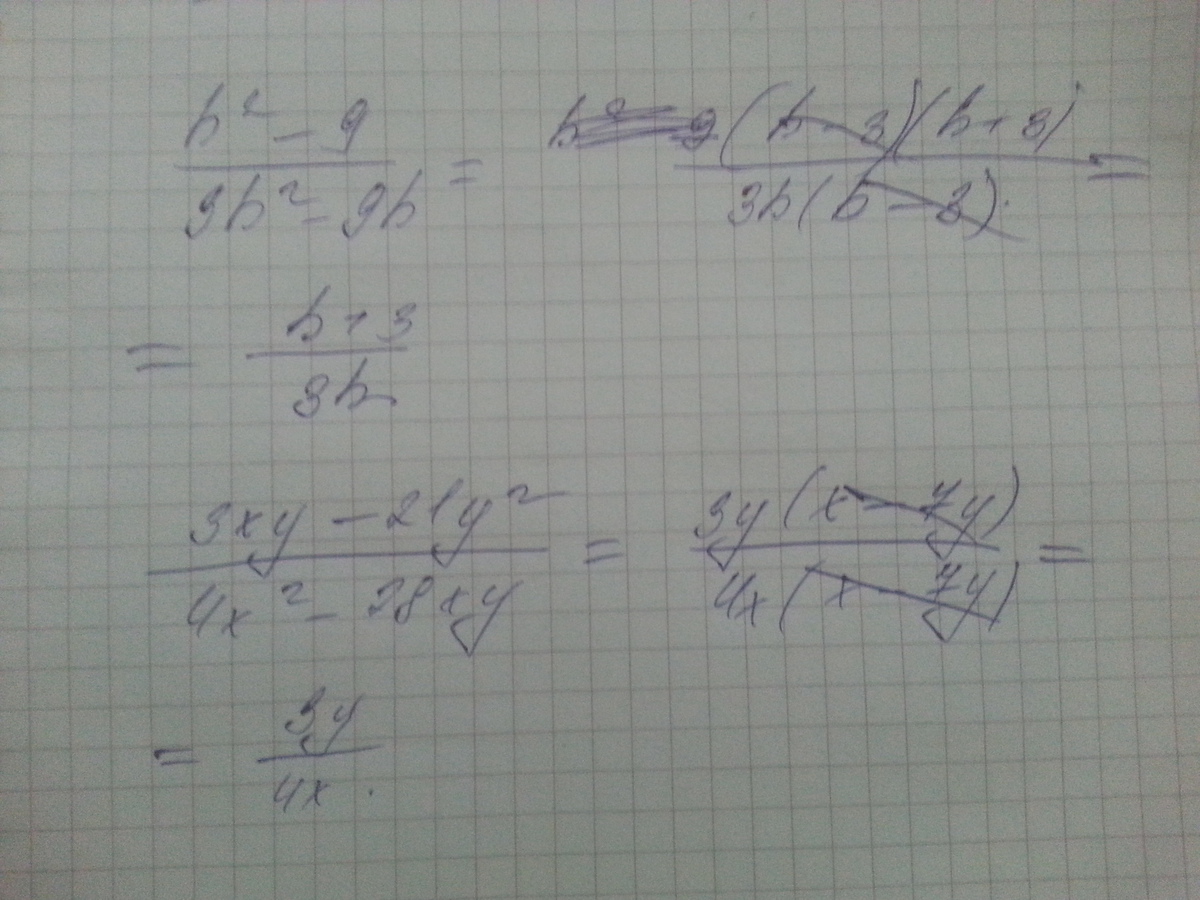 b² - 9 / 3b² - 9b = (b - 3)(b + 3) / 3b(b - 3) =
= b + 3 / 3b
3xy - 21y² / 4x² - 28xy = 3y(x - 7y) / 4x(x - 7y) =
= 3y / 4x.